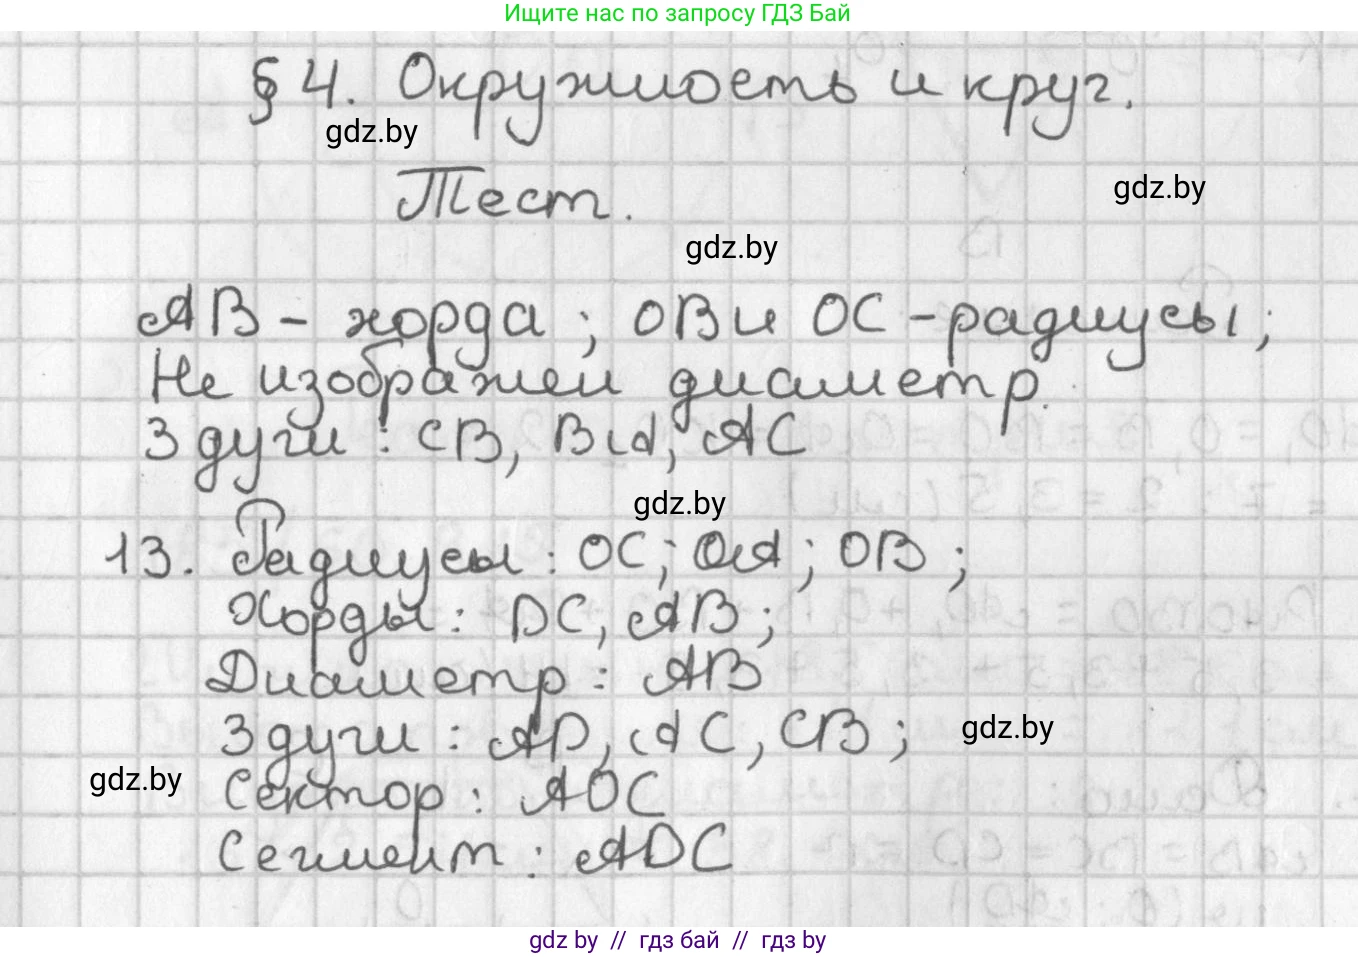 Ищите нас по запросу ГДЗ Бай
§ 4. Окружность и круг.
gdz.by
Тест.
gdz.by
gdz.by
AB - хорда ; OB и OC - радиусы ;
Не изображен диаметр.
3 дуги : CB, BA, AC
gdz.by
13. Радиусы : OC; OA ; OB ;
Хорды : DC, AB ;
Диаметр : AB
3 дуги : AD, AC, CB ;
gdz.by
gdz.by
Сектор : AOC
Сегмент : ADC
gdz by // гдз бай // гдз by